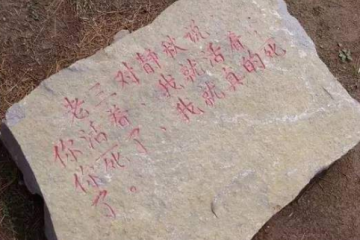 老三对静秋说
你活着，我就活着；
你死了，我就真的死
了。